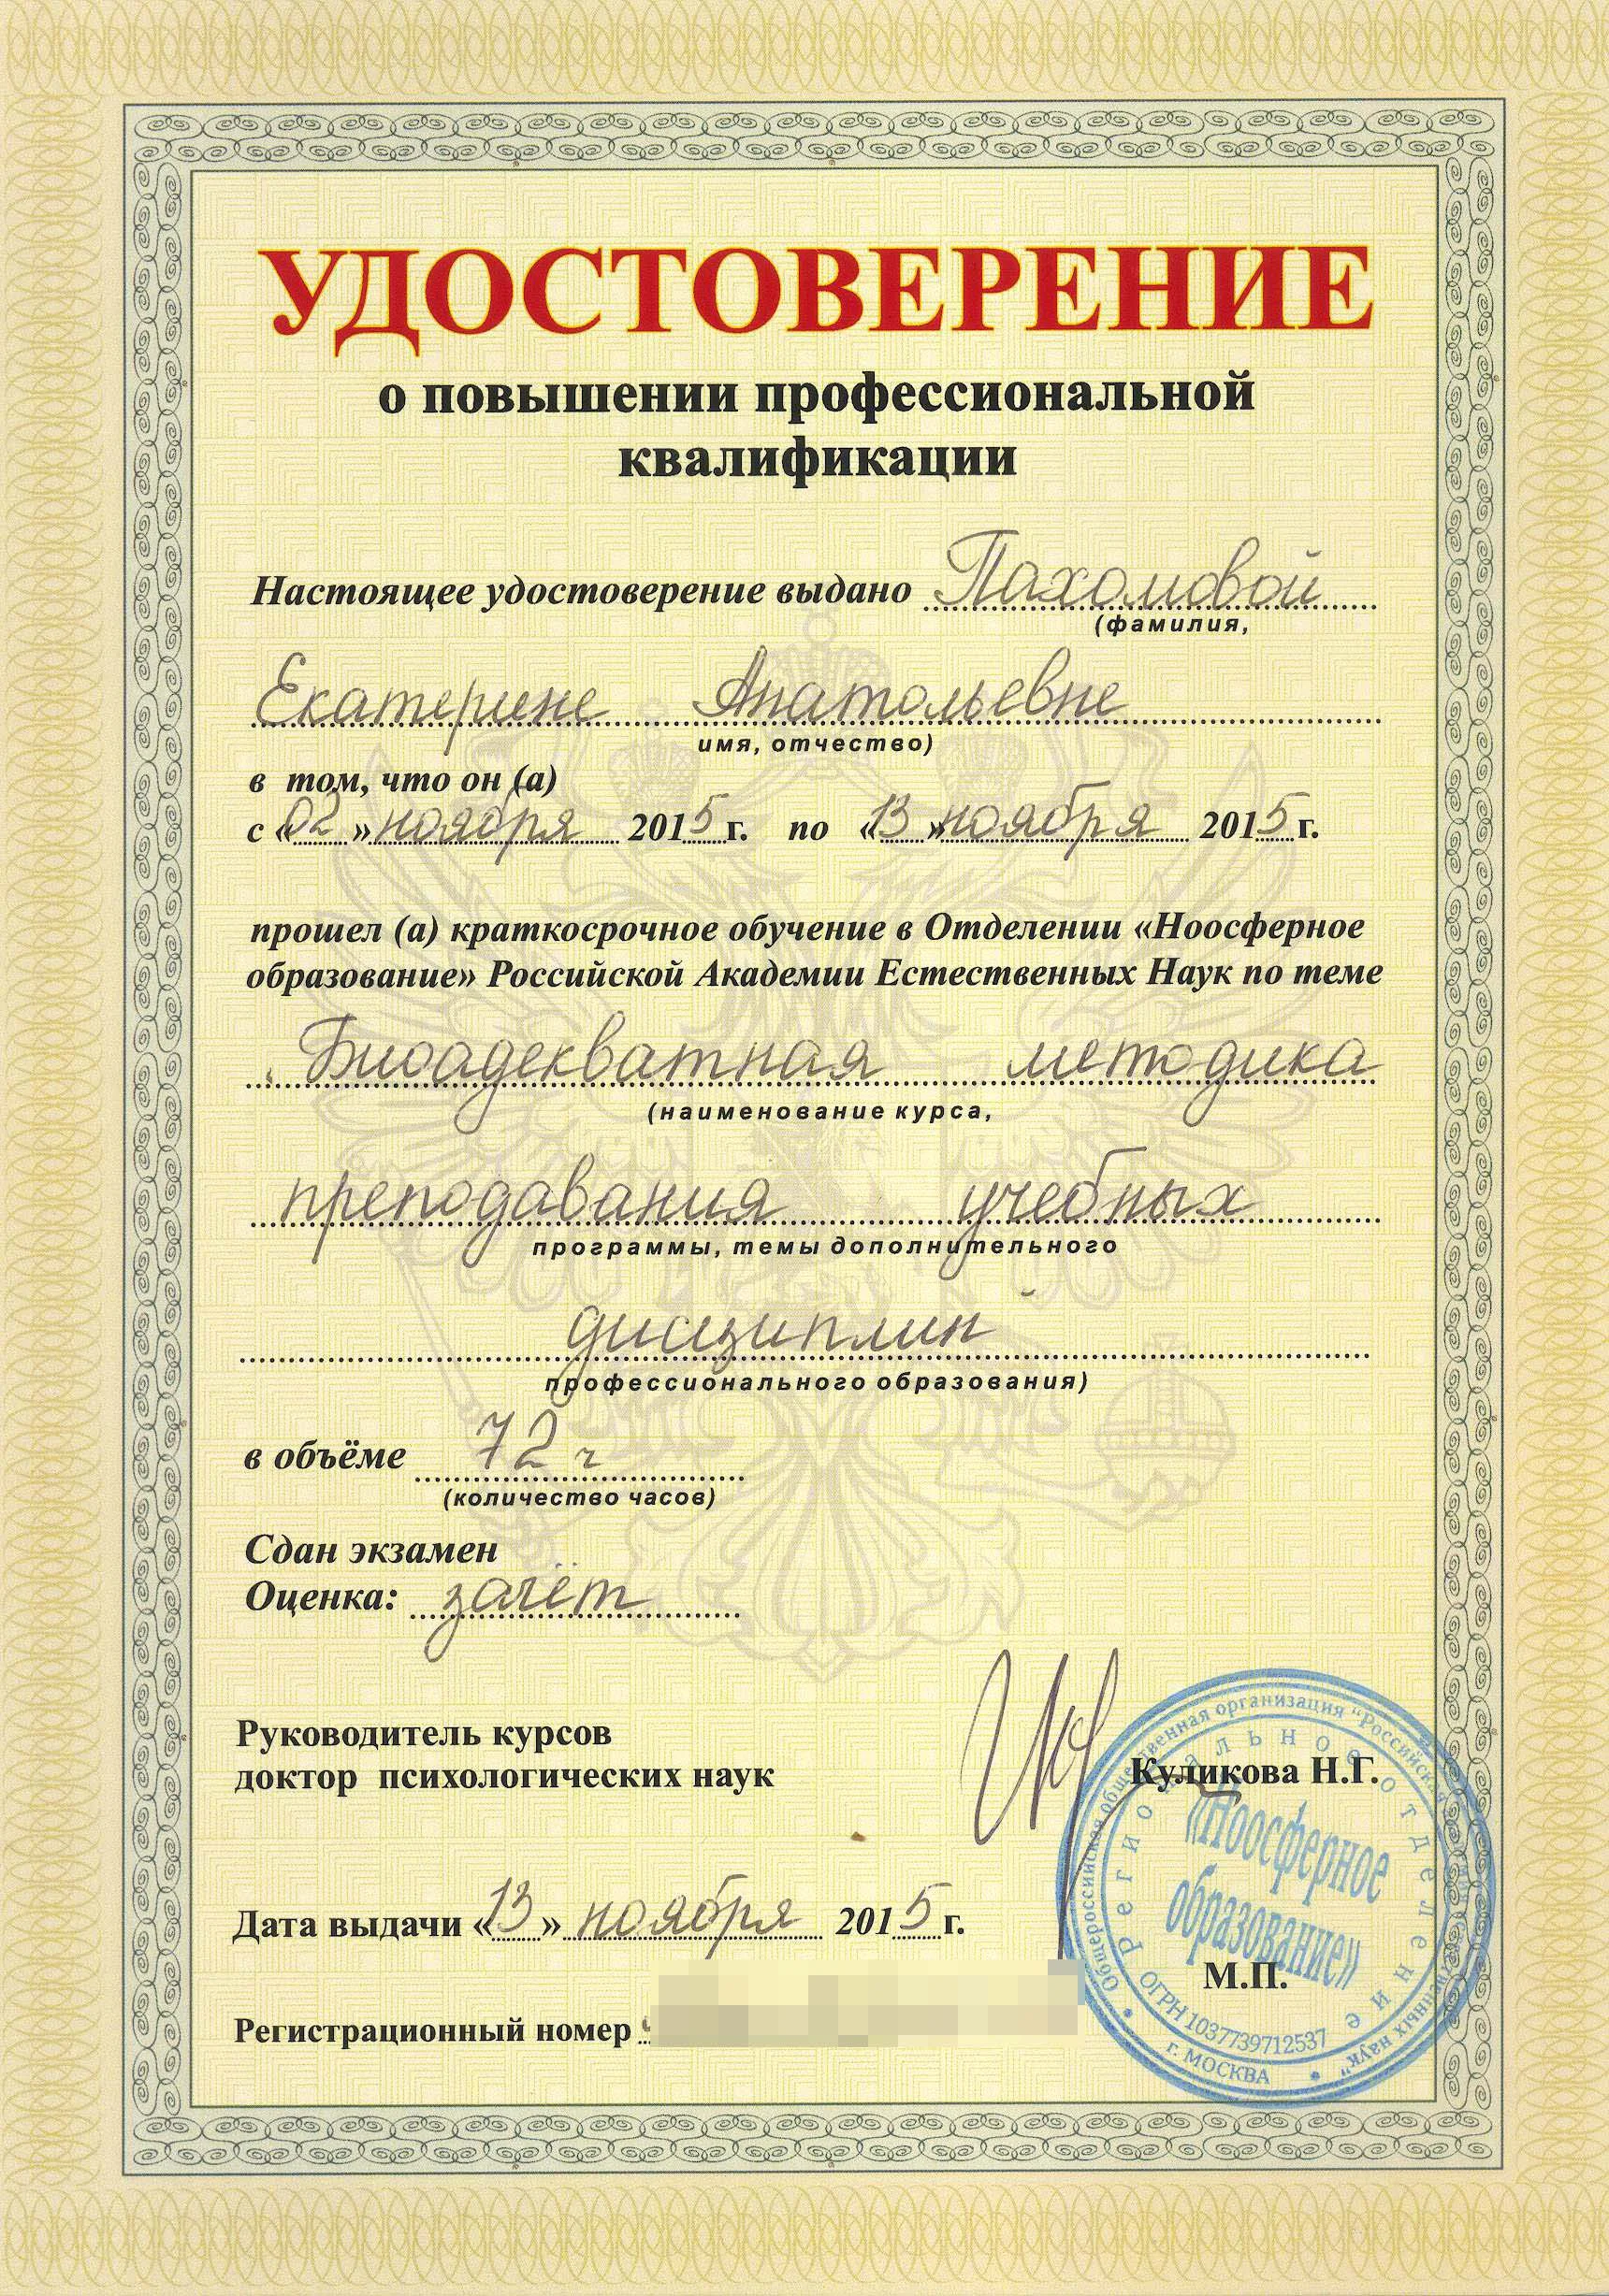 УДОСТОВЕРЕНИЕ
о повышении профессиональной
квалификации
Настоящее удостоверение выдано Пахомовой
(фамилия,
Екатерине Анатольевне
имя, отчество)
в том, что он (а)
с «02» ноября 2015 г. по «13» ноября 2015 г.
прошел (а) краткосрочное обучение в Отделении «Ноосферное
образование» Российской Академии Естественных Наук по теме
Биоадекватная методика
(наименование курса,
преподавания учебных
программы, темы дополнительного
дисциплин
профессионального образования)
в объёме 72 ч
(количество часов)
Сдан экзамен
Оценка: зачёт
Руководитель курсов
доктор психологических наук
Куликова Н.Г.
Дата выдачи «13» ноября 2015 г.
М.П.
Регистрационный номер
Общероссийская общественная организация "Российская наук"
Региональное отделение
«Ноосферное
образование»
ОГРН 1037739712537
г. МОСКВА